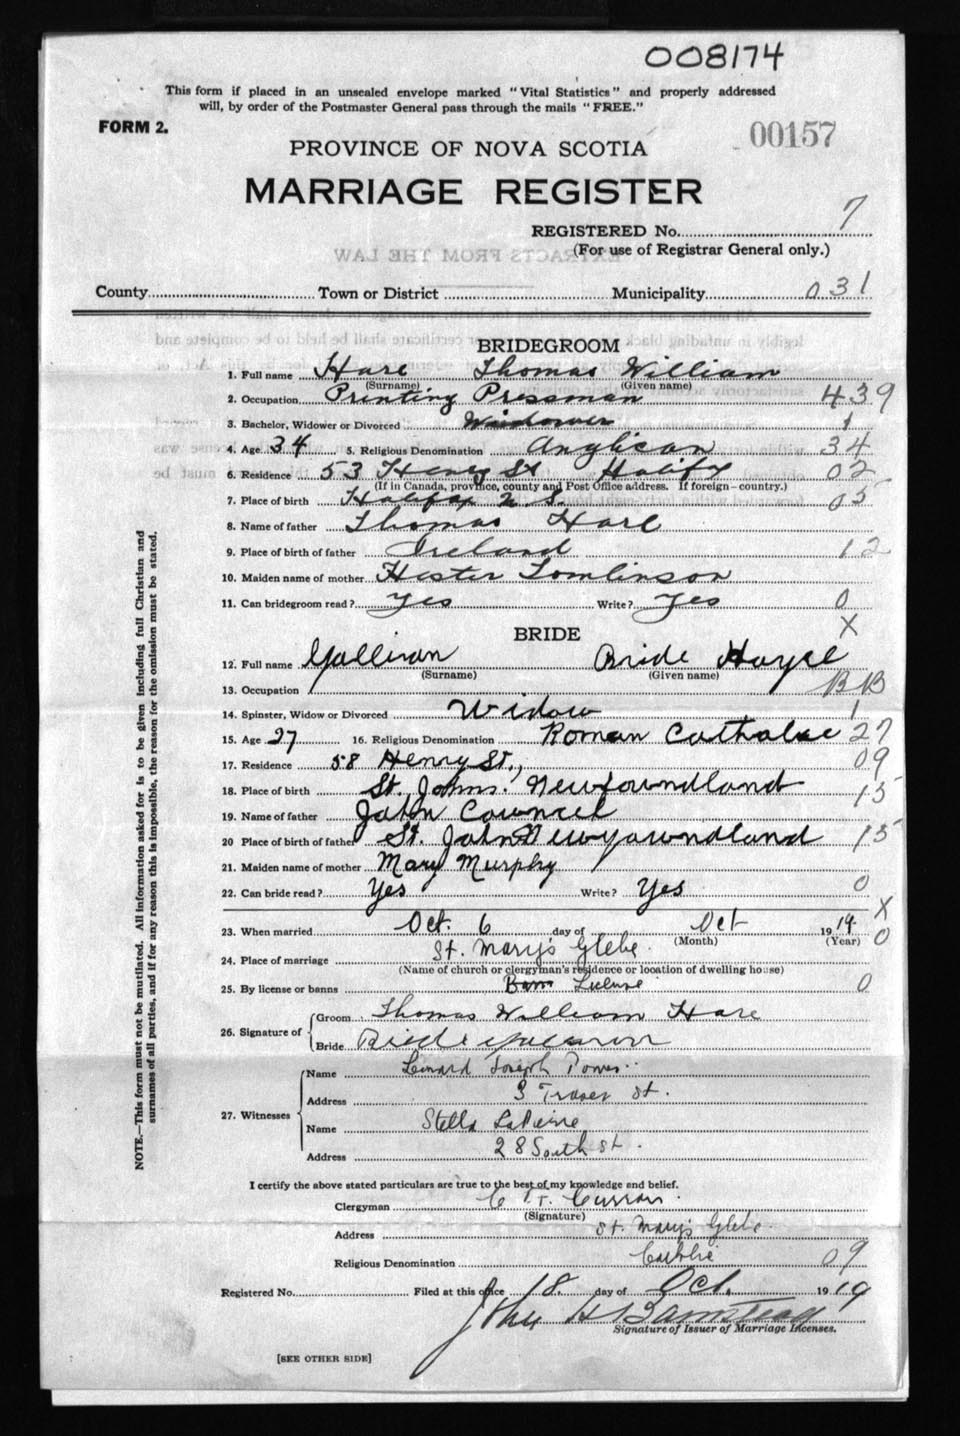 008174
This form if placed in an unsealed envelope marked "Vital Statistics" and properly addressed
will, by order of the Postmaster General pass through the mails "FREE."
FORM 2.
00157
PROVINCE OF NOVA SCOTIA
MARRIAGE REGISTER
REGISTERED No. 7
(For use of Registrar General only.)
EXTRACTS FROM THE LAW
County Town or District Municipality 031
BRIDEGROOM
1. Full name Hare Thomas William
(Surname) (Given name)
2. Occupation Printing Pressman 439
3. Bachelor, Widower or Divorced Widower 1
4. Age 34 5. Religious Denomination Anglican 34
6. Residence 53 Henry St Halifx 02
(If in Canada, province, county and Post Office address. If foreign—country.)
7. Place of birth Halifax N.S. 05
8. Name of father Thomas Hare
9. Place of birth of father Ireland 12
10. Maiden name of mother Hester Tomlinson
11. Can bridegroom read? Yes Write? Yes 0
X
BRIDE
12. Full name Gallivan Bride Hayse
(Surname) (Given name)
13. Occupation BB
14. Spinster, Widow or Divorced Widow 1
15. Age 27 16. Religious Denomination Roman Catholic 27
17. Residence 58 Henry St., 09
18. Place of birth St. Johns. Newfoundland 15
19. Name of father John Councel
20 Place of birth of father St. John Newfoundland 15
21. Maiden name of mother Mary Murphy
22. Can bride read? Yes Write? Yes 0
X
23. When married Oct. 6 day of Oct 1919 0
(Month) (Year)
24. Place of marriage St. Mary's Glebe
(Name of church or clergyman's residence or location of dwelling house)
25. By license or banns License 0
26. Signature of
Groom Thomas William Hare
Bride Bride
27. Witnesses
Name Leonard Joseph Power
Address 3 Fraser St.
Name Stella LaPierre
Address 28 South St.
I certify the above stated particulars are true to the best of my knowledge and belief.
Clergyman C. Curran
(Signature)
Address St. Mary's Glebe
Religious Denomination Catholic 09
Registered No. Filed at this office 18 day of Oct. 1919
John H Barnstead
Signature of Issuer of Marriage Licenses.
[SEE OTHER SIDE]
NOTE.—This form must not be mutilated. All information asked for is to be given including full Christian and
surnames of all parties, and if for any reason this is impossible, the reason for the omission must be stated.